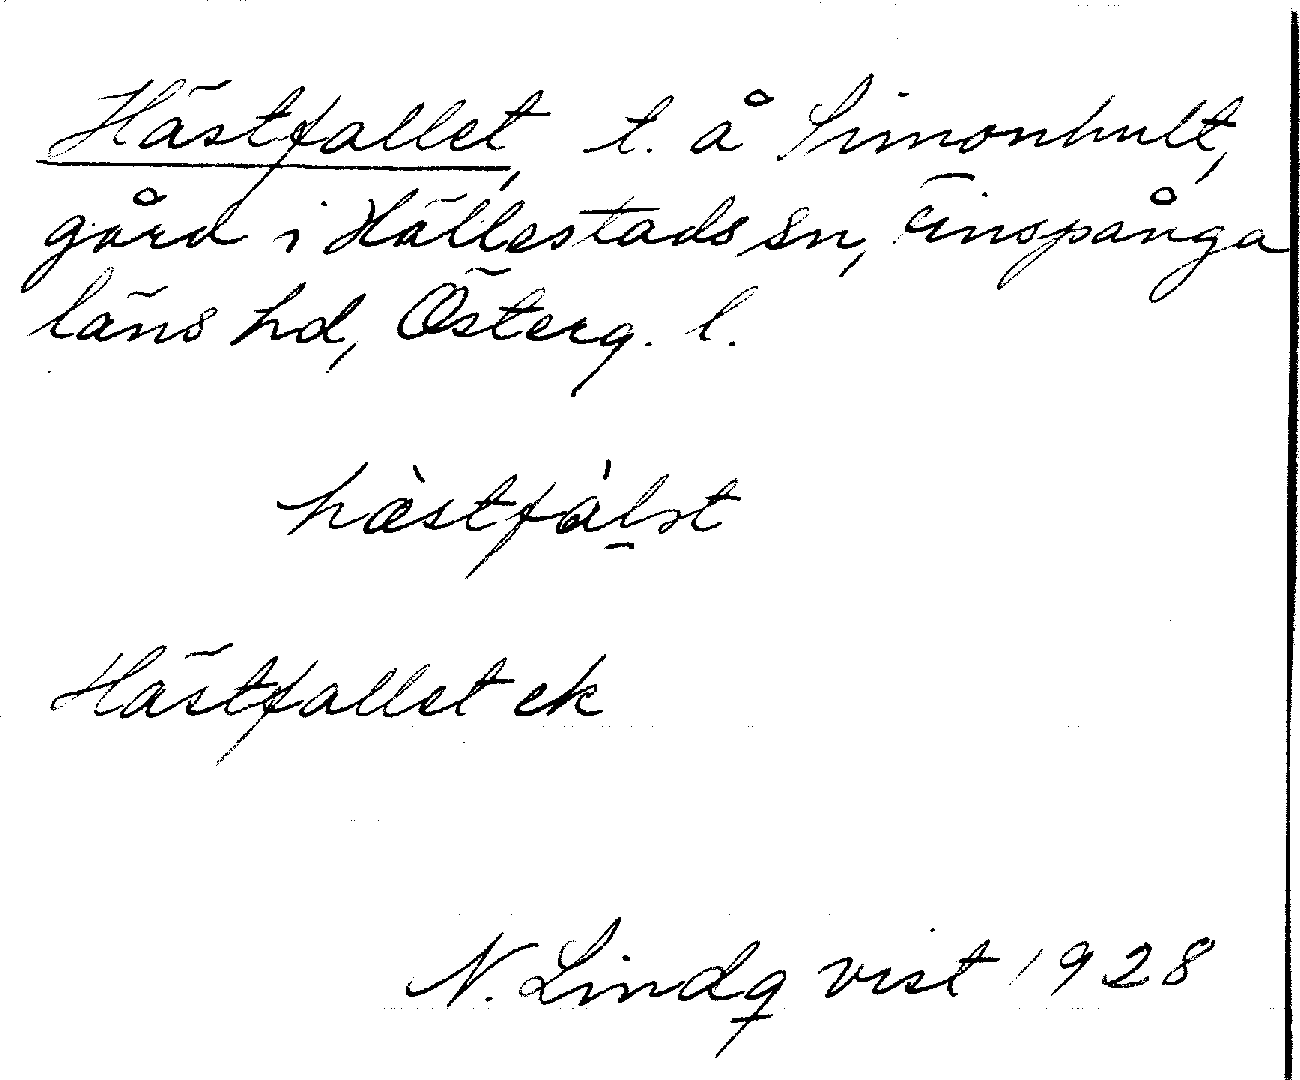 Hästfallet, t. å Simonhult,
gård i Hällestads sn, Finspånga
läns hd, Österg. l.
hæ̀stfàl̠ət
Hästfallet ek
N. Lindqvist 1928